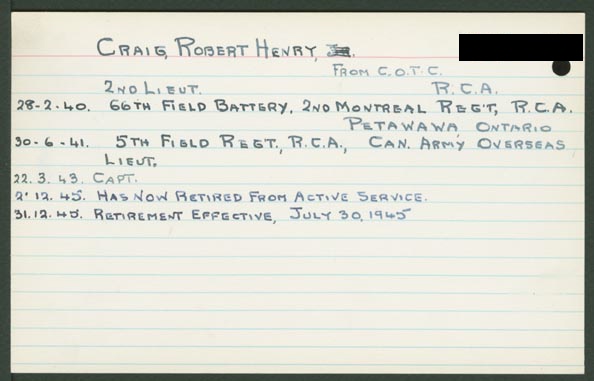 CRAIG, ROBERT HENRY,
FROM C.O.T.C.
2ND LIEUT. R.C.A.
28-2-40. 66TH FIELD BATTERY, 2ND MONTREAL REG'T, R.C.A.
PETAWAWA ONTARIO
30-6-41. 5TH FIELD REGT., R.C.A., CAN. ARMY OVERSEAS
LIEUT.
22.3.43. CAPT.
12.45. HAS NOW RETIRED FROM ACTIVE SERVICE.
31.12.45. RETIREMENT EFFECTIVE, JULY 30, 1945